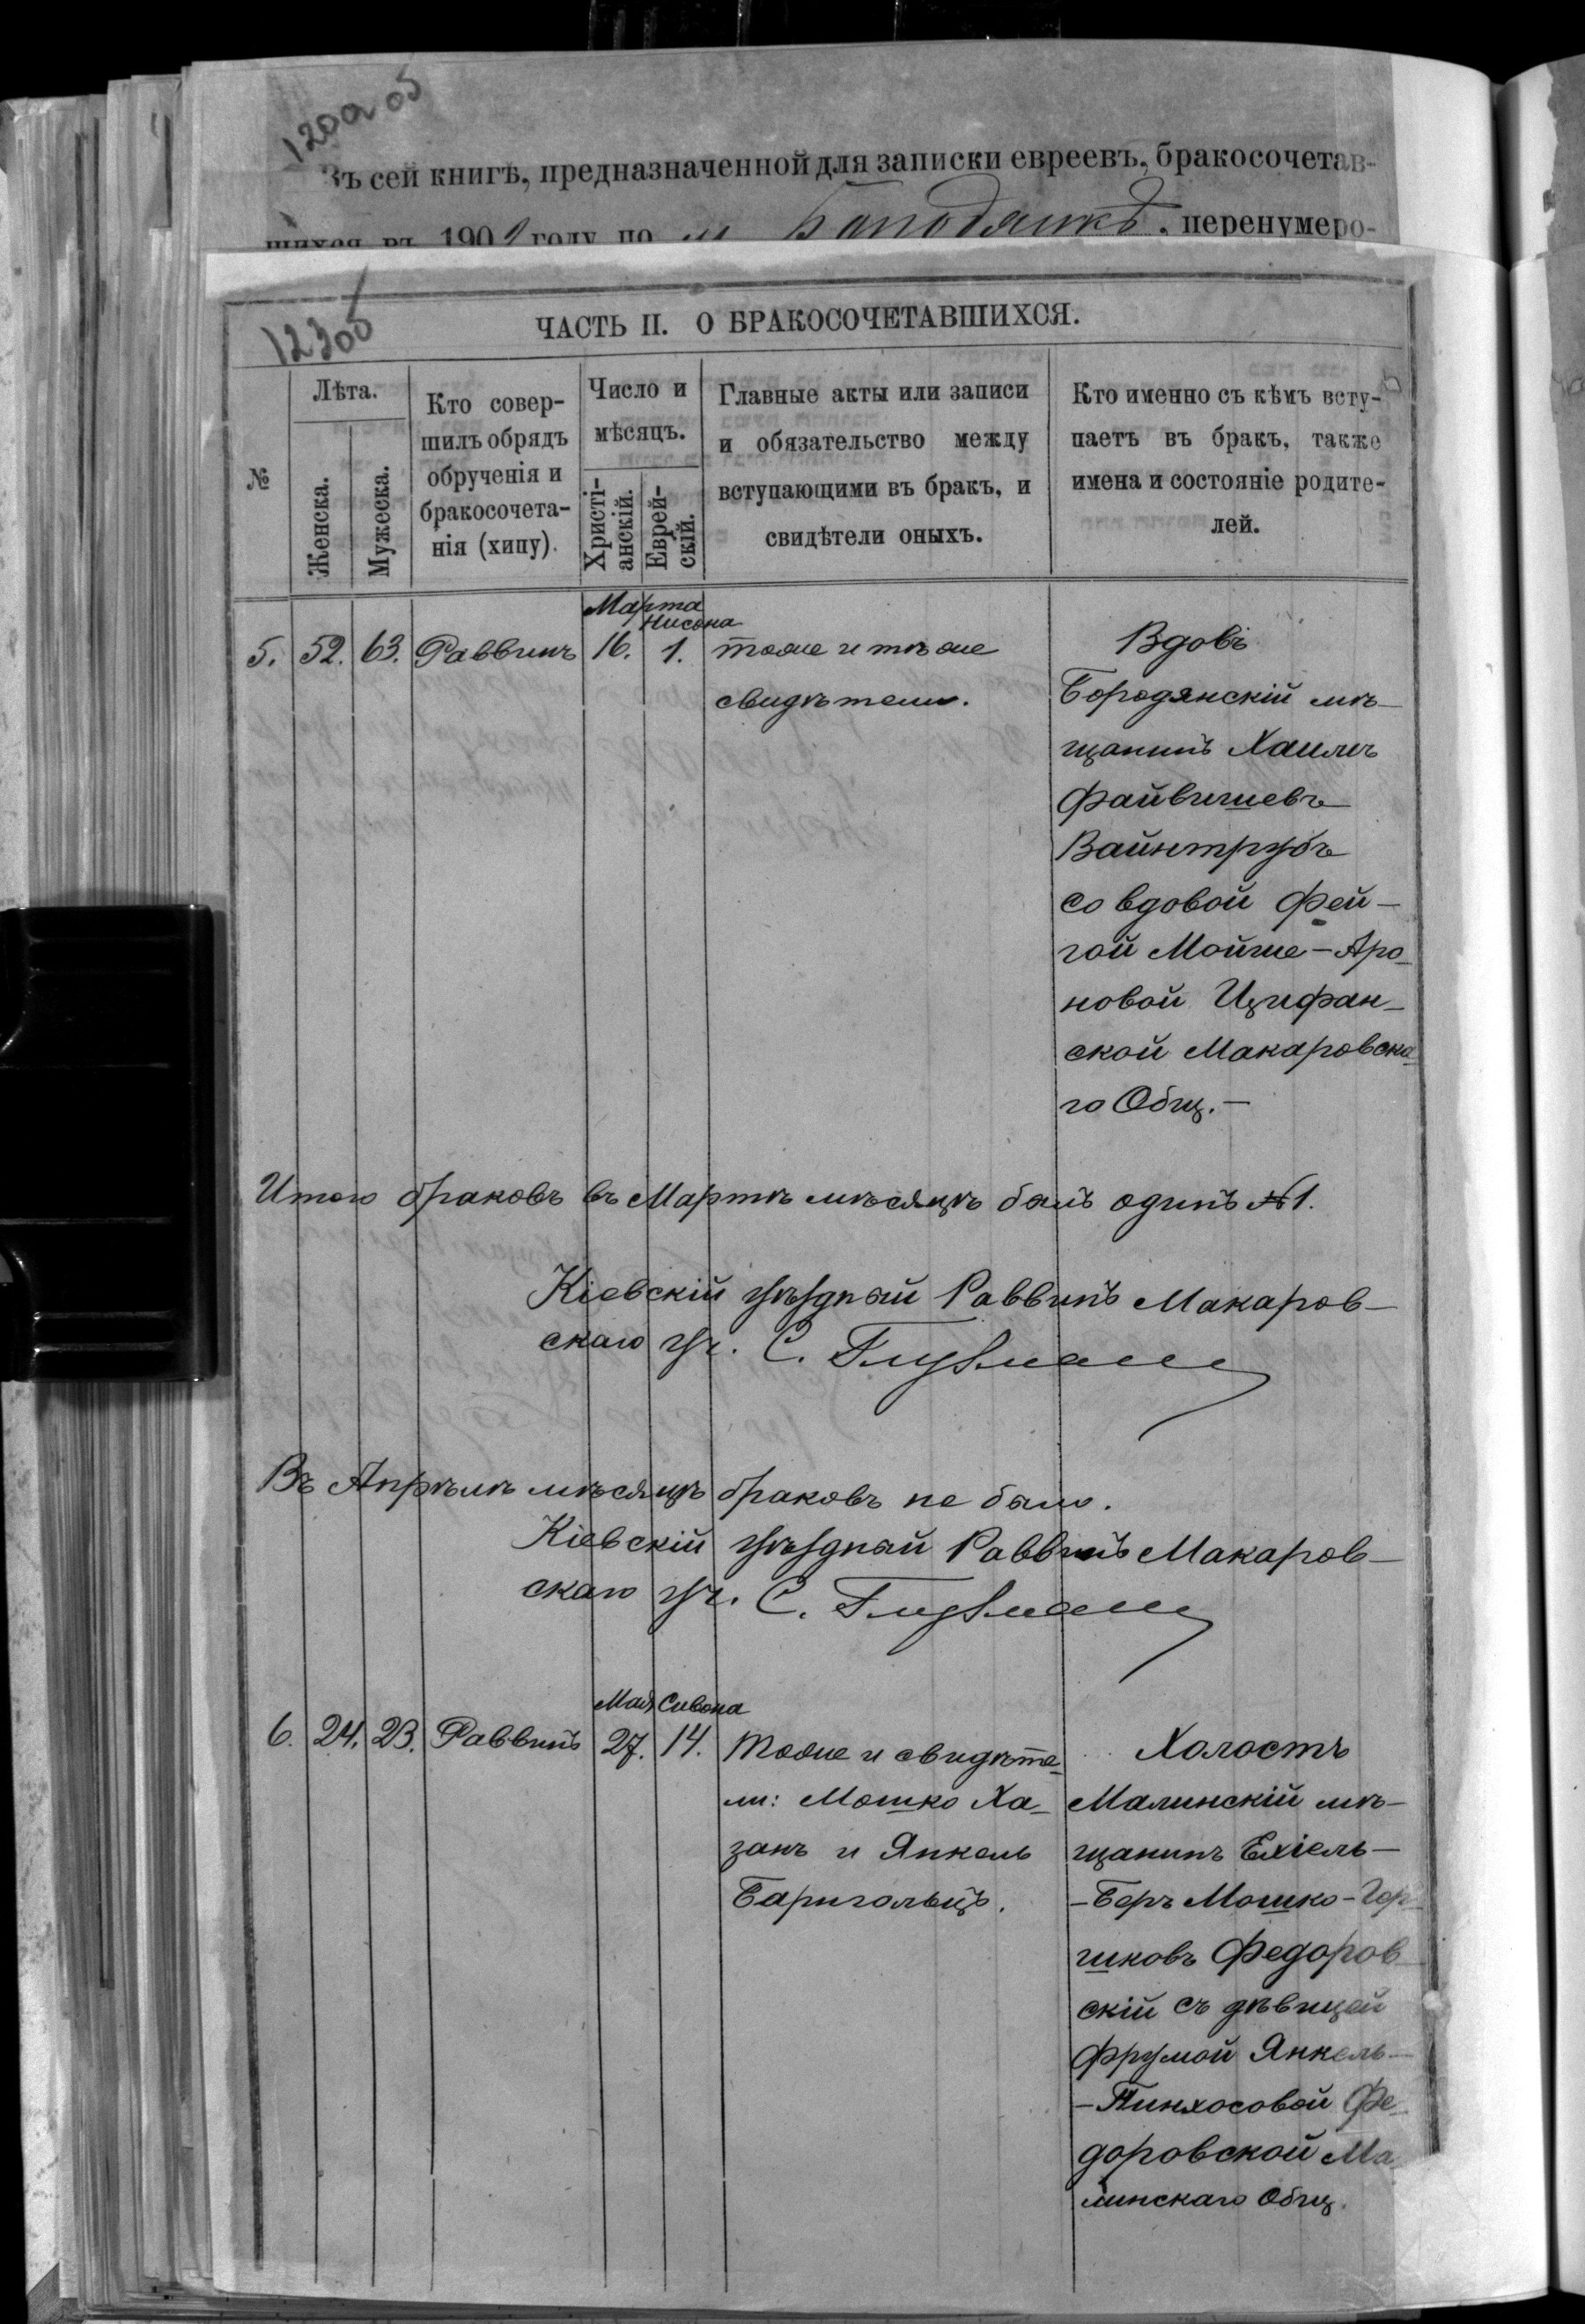 120а об
Въ сей книгѣ, предназначенной для записки евреевъ, бракосочетав-
шихся въ 190 году по м Бородянкѣ, перенумеро-
123об
ЧАСТЬ II. О БРАКОСОЧЕТАВШИХСЯ.
№
Лѣта.
Женска.
Мужеска.
Кто совер-
шилъ обрядъ
обрученія и
бракосочета-
нія (хипу).
Число и
мѣсяцъ.
Христі-
анскій.
Еврей-
скій.
Главные акты или записи
и обязательство между
вступающими въ бракъ, и
свидѣтели оныхъ.
Кто именно съ кѣмъ всту-
паетъ въ бракъ, также
имена и состояніе родите-
лей.
Марта
Нисона
5. 52. 63. Раввинъ 16. 1. тоже и тѣ же
свидѣтели.
Вдовъ
Бородянскій мѣ-
щанинъ Хаимъ
Файвишевъ
Вайнтрубъ
со вдовой Фей-
гой Мойше-Аро-
новой Цифан-
ской Макаровска-
го Общ.-
Итого браковъ въ Мартѣ мѣсяцѣ былъ одинъ №1.
Кіевскій уѣздный Раввинъ Макаров-
скаго уч. С. Глузманъ
Въ Апрѣлѣ мѣсяцѣ браковъ не было.
Кіевскій уѣздный Раввинъ Макаров-
скаго уч. С. Глузманъ
Мая Сивона
6. 24. 23. Раввинъ 27. 14. Тоже и свидѣте-
ли: Мошко Ха-
занъ и Янкель
Баригольцъ.
Холостъ
Малинскій мѣ-
щанинъ Ехіель-
-Беръ Мошко-Гер-
шковъ Федоров-
скій съ дѣвицей
Фрумой Янкель-
-Пинхосовой Фе-
доровской Ма-
линскаго Общ.